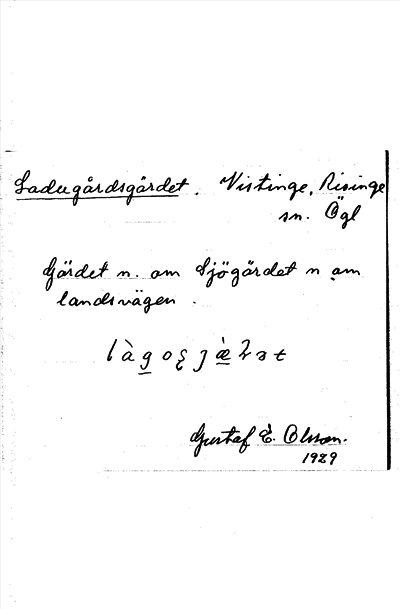 Ladugårdsgärdet. Vistinge, Risinge
sn. Ögl
Gärdet n. om Sjögärdet n om
landsvägen.
Gustaf E. Olsson.
1929